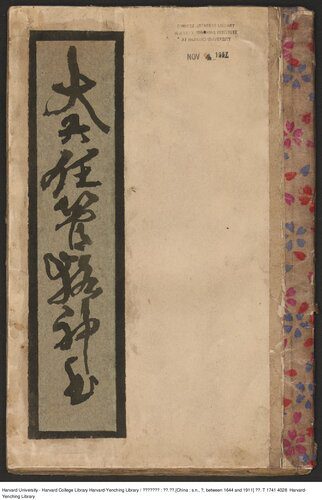 大六任管輅神書
CHINESE-JAPANESE LIBRARY
HARVARD-YENCHING INSTITUTE
AT HARVARD UNIVERSITY
NOV 1952
Harvard University - Harvard College Library Harvard-Yenching Library / ??????? : ??. ?? [China : s.n., ?, between 1644 and 1911] ??. T 1741 4026 Harvard-
Yenching Library